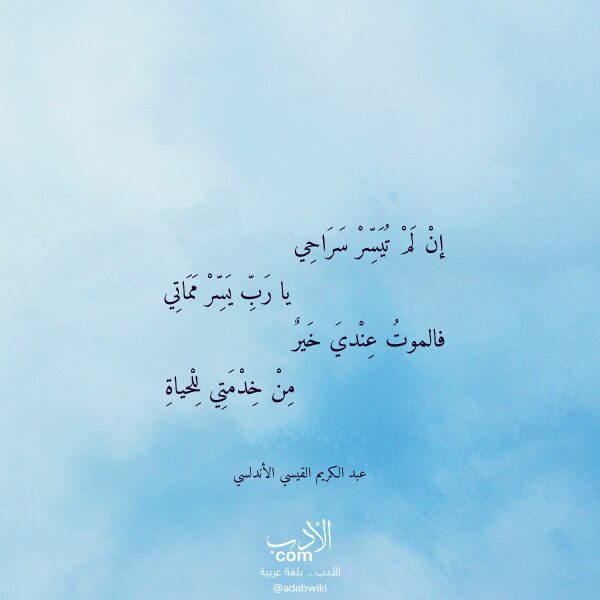 إنْ لَمْ تُيَسِّرْ سَرَاحِي
يا رَبِّ يَسِّرْ مَمَاتِي
فالموتُ عِنْديَ خَيرٌ
مِنْ خِدْمَتِي لِلْحياةِ
عبد الكريم القيسي الأندلسي
الأدب
com
الأدب .. بلغة عربية
@adabwiki